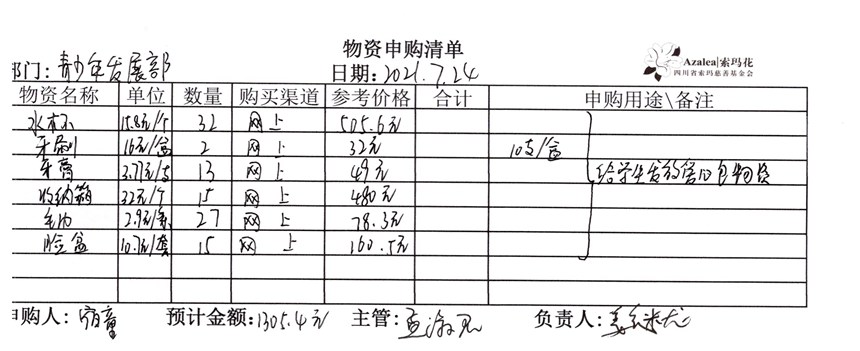 物资申购清单
Azalea|索玛花
四川省索玛慈善基金会
部门：青少年发展部 日期：2021.7.24
物资名称 单位 数量 购买渠道 参考价格 合计 申购用途\备注
水杯 15.8元/个 32 网上 505.6元
牙刷 16元/盒 2 网上 32元 10支/盒
牙膏 3.77元/支 13 网上 49元 给学生发放 包物资
收纳箱 32元/个 15 网上 480元
毛巾 2.9元/条 27 网上 78.3元
脸盆 10.7元/套 15 网上 160.5元
申购人： 预计金额：1305.4元 主管：孟 负责人：